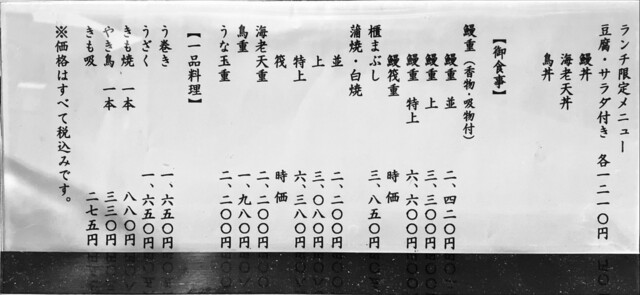 ランチ限定メニュー
豆腐・サラダ付き 各一二一〇円
鰻丼
海老天丼
鳥丼
【御食事】
鰻重(香物・吸物付)
鰻重 並 二、四二〇円
鰻重 上 三、三〇〇円
鰻重 特上 六、六〇〇円
鰻筏重 時価
櫃まぶし 三、八五〇円
蒲焼・白焼
並 二、二〇〇円
上 三、〇八〇円
特上 六、三八〇円
筏 時価
海老天重 二、二〇〇円
鳥重 一、九八〇円
うな玉重 二、二〇〇円
【一品料理】
う巻き 一、六五〇円
うざく 一、六五〇円
きも焼 一本 八八〇円
やき鳥 一本 三三〇円
きも吸 二七五円
※価格はすべて税込みです。